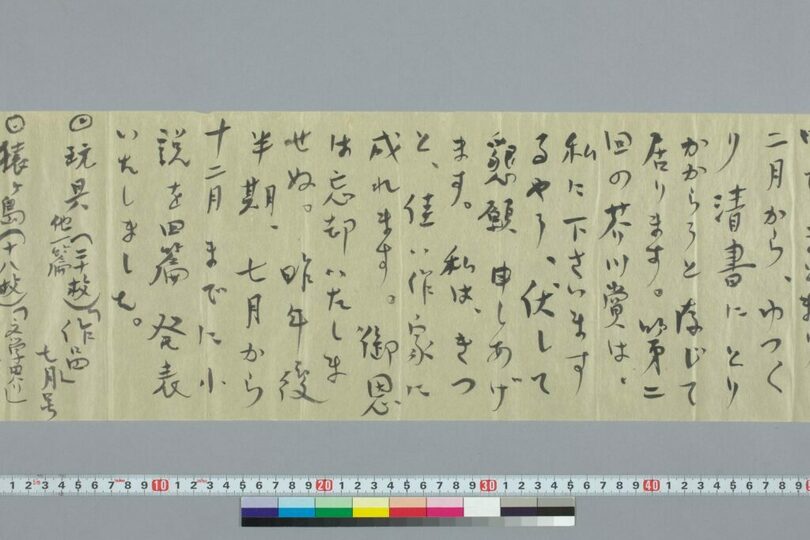 二月から、ゆつく
り清書にとり
かからうと存じて
居ります。第二
回の芥川賞は、
私に下さいます
るやう、伏して
懇願申しあげ
ます。私は、きつ
と、佳い作家に
成れます。御恩
は忘却いたしま
せぬ。昨年後
半期、七月から
十二月までに小
説を四篇発表
いたしました。
◎玩具(二十枚)「作品」七月号
他一篇
◎猿ヶ島(十八枚)「文学界」
1 2 3 4 5 6 7 8 9 10 1 2 3 4 5 6 7 8 9 20 1 2 3 4 5 6 7 8 9 30 1 2 3 4 5 6 7 8 9 40 1 2 3 4 5 6 7 8 9